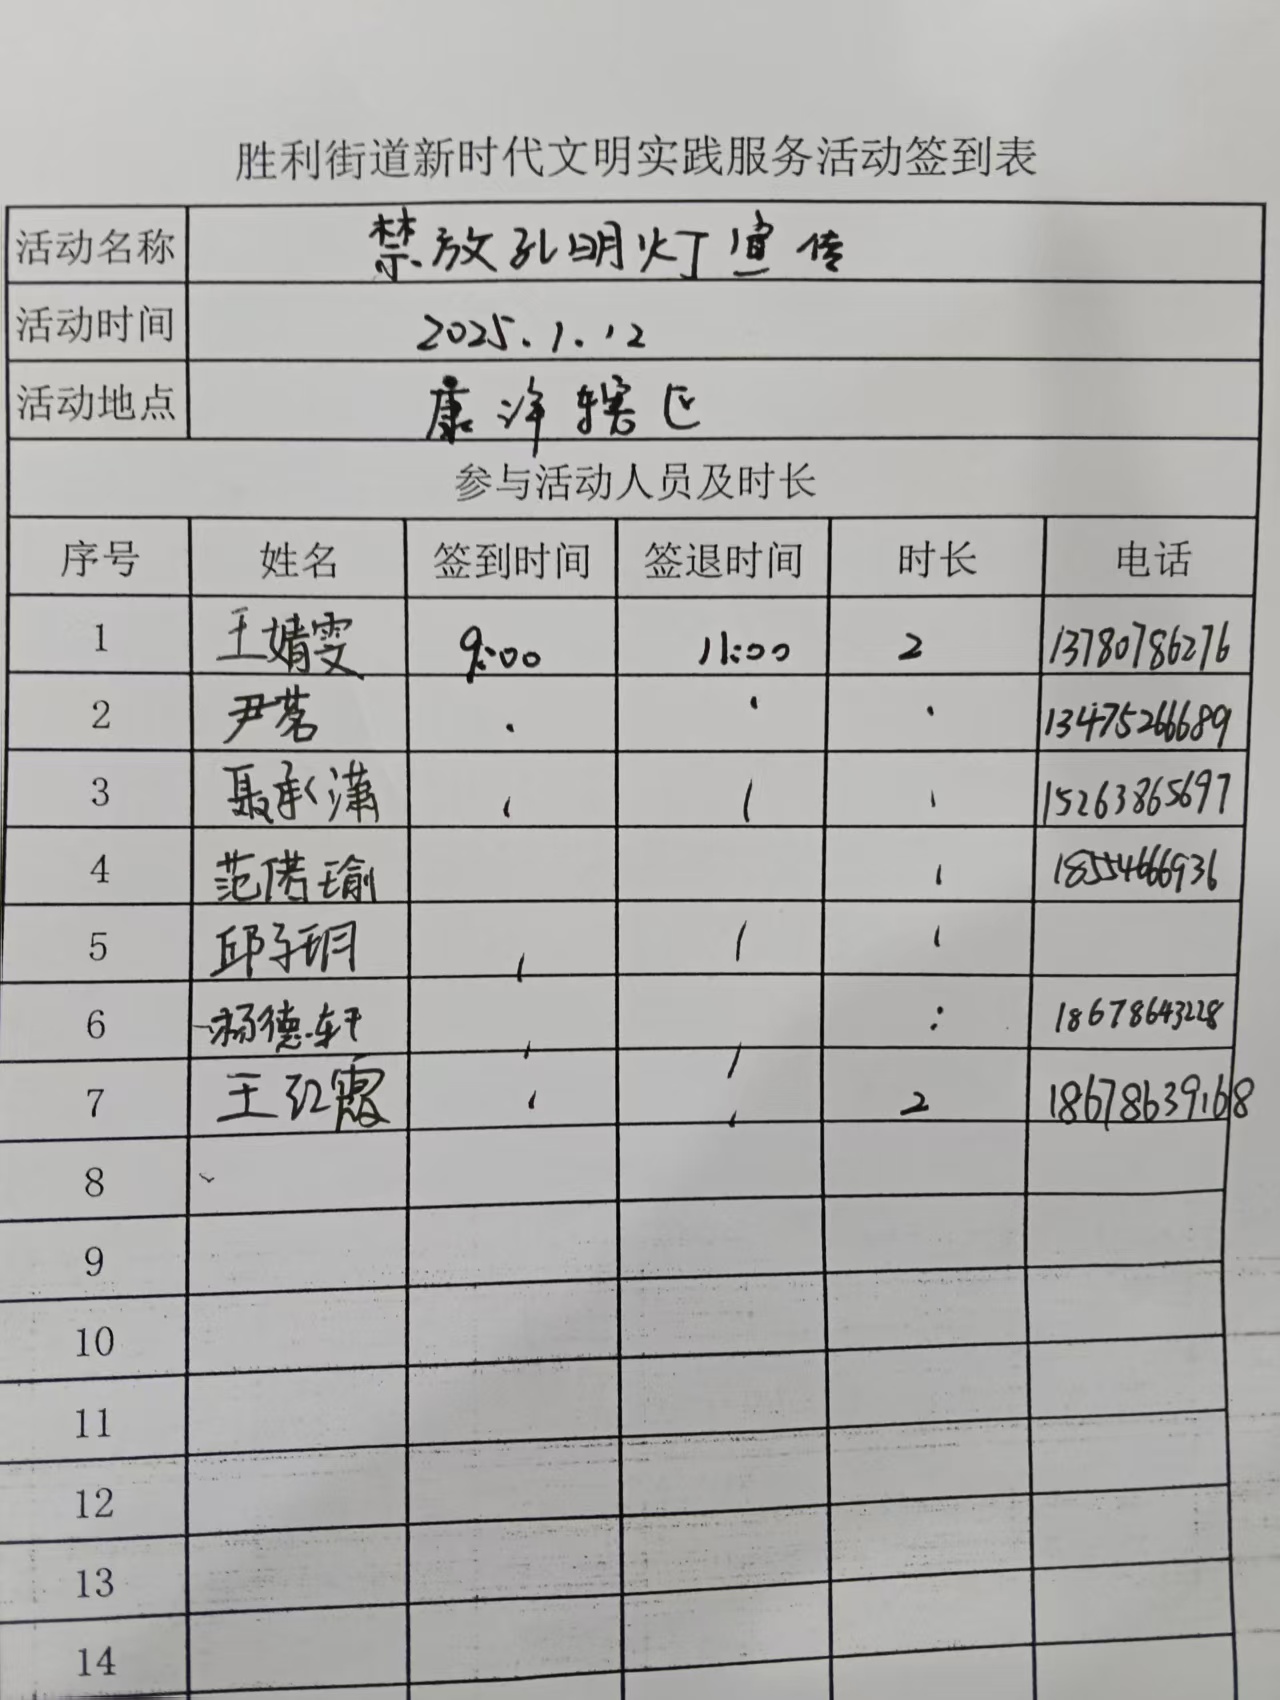 胜利街道新时代文明实践服务活动签到表
活动名称 禁放孔明灯宣传
活动时间 2025.1.12
活动地点 康洋辖区
参与活动人员及时长
序号 姓名 签到时间 签退时间 时长 电话
1 王婧雯 9:00 11:00 2 13780786276
2 尹茗 13475266689
3 聂承潇 15263865697
4 范偌瑜 18554666936
5 邱子玥
6 杨德轩 18678643228
7 王红霞 2 18678639168
8
9
10
11
12
13
14